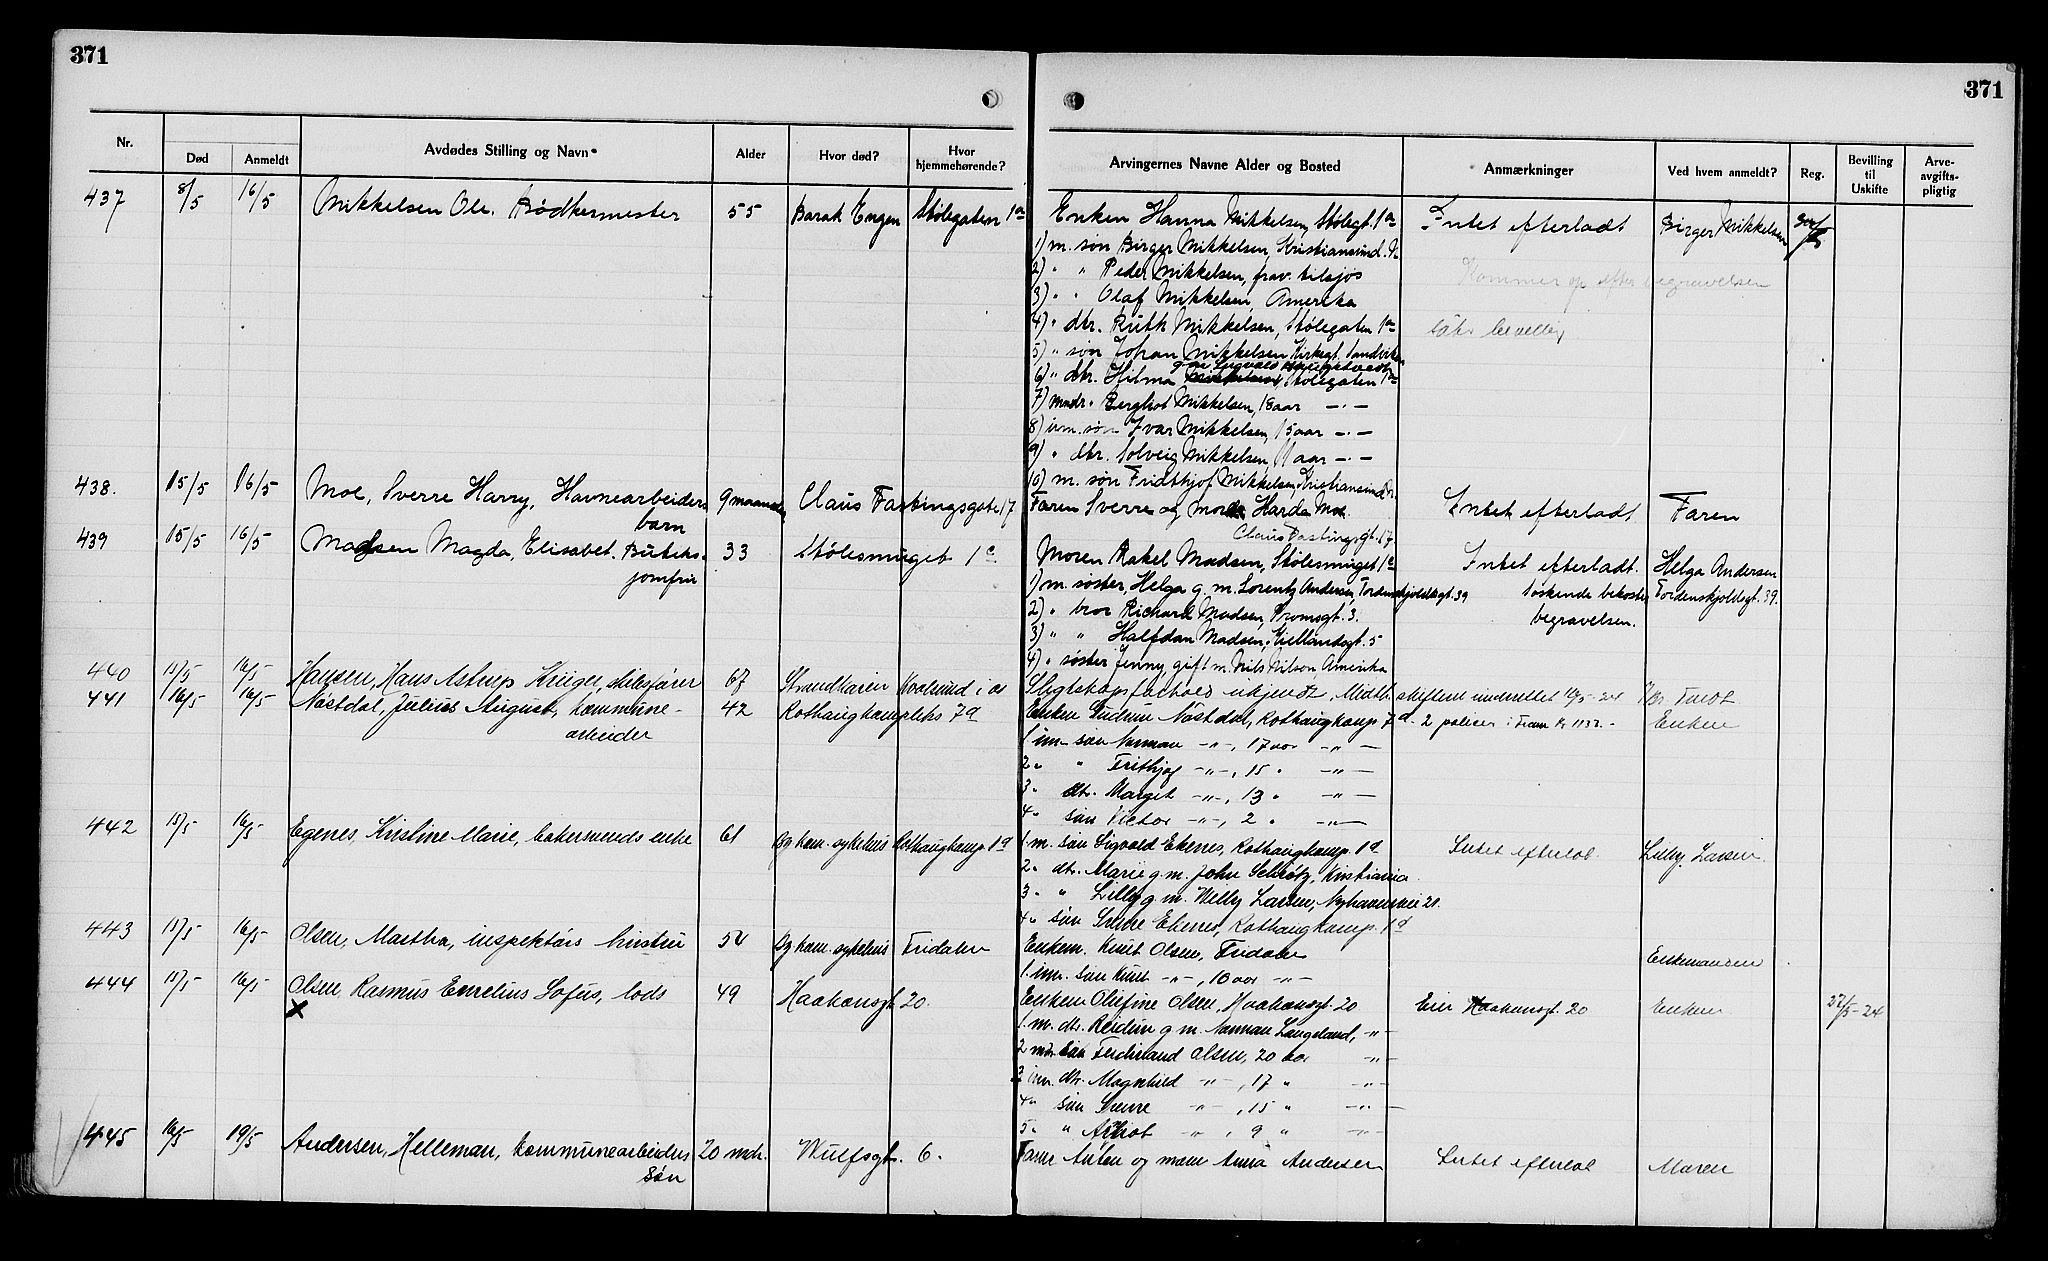 371
371
Nr.
Død
Anmeldt
Avdødes Stilling og Navn
Alder
Hvor død?
Hvor hjemmehørende?
Arvingernes Navne Alder og Bosted
Anmærkninger
Ved hvem anmeldt?
Reg.
Bevilling til Uskifte
Arve-avgifts-pligtig
437 8/5 16/5 Mikkelsen Ole. Bödkermester 55 Barak Engen Stølegaten 1a Enken Hanna Mikkelsen, Stølegt. 1a Intet efterladt Birger Mikkelsen
1) m. søn Birger Mikkelsen, Kristiansund. N.
2) " " Peder Mikkelsen, frav. tilsjøs Kommer op efter begravelsen
3) " " Olaf Mikkelsen, Amerika
4) " dtr. Ruth Mikkelsen, Stølegaten 1a
5) " søn Johan Mikkelsen Kirkegt. Sandviken
6) " dtr. Hilma Stølegaten 1a
7) mndr. Berghot Mikkelsen, 18 aar — " —
8) um. søn Ivar Mikkelsen, 15 aar — " —
9) " dtr. Solveig Mikkelsen, 11 aar — " —
10) m. søn Fridthjof Mikkelsen, Kristiansund N.
438. 15/5 16/5 Moe, Sverre Harry, Havnearbeiders 9 maaneder Claus Fastingsgate 17 Faren Sverre og Harda Moe. Intet efterladt Faren
barn
Claus Fastingsgt. 17
439 15/5 16/5 Madsen Magda, Elisabet. Butiks- 33 Stølesmuget 1c Moren Rakel Madsen, Stølesmuget 1c Intet efterladt. Helga Andersen
jomfru
1) m. søster, Helga g. m. Lorentz Andersen, Tordenskjoldsgt. 39 Søskende bekoster Tordenskjoldsgt. 39.
2) " bror Richard Madsen, Tromsgt. 3. begravelsen.
3) " " Halfdan Madsen, Kiellandsgt. 5
4) " søster Jenny gift m. Nils Nilson Amerika
440 15/5 16/5 Hansen, Hans Astrup Krüger, skibsfører 67 Strandkaien Slegtskapsforhold ukjendt, Midth. skifteret underrettet 16/5-24
441 16/5 16/5 Nøstdal, Julius August, kommune- 42 Rothaugkompleks 7a Enken Gudrun Nøstdal, Rothaugkomp 7a. 2 poliser i Fram Kr 1132.- Enken
arbeider
1. um. søn Norman — " —, 17 aar — " —
2. " " Fritjof — " —, 15 " — " —
3. " dtr. Margit — " —, 13 " — " —
4. " søn Victor — " —, 2 " — " —
442 15/5 16/5 Egenes, Kristine Marie, bakersvends enke 61 Bg. kom. sykehus Rothaugkomp. 1a 1. m. søn Sigvald Ekenes, Rothaugkomp. 1a Intet efterlat. Lilly Larsen.
2. " dtr. Marie g. m. John Schrøtz, Kristiania
3. " " Lilly g. m. Willy Larsen, Nyhavnsvei 21.
4. " søn Sverre Ekenes, Rothaugkomp. 1a
443 15/5 16/5 Olsen, Martha, inspektørs hustru 54 Bg kom. sykehus Fridalen Enkem. Knut Olsen, Fridalen Enkemanden
1. um. søn Knut — " —, 10 aar — " —
444 15/5 16/5 Olsen, Rasmus Emelius Sofus, lods 49 Haakonsgt 20. Enken Olufine Olsen, Haakonsgt. 20 Eier Haakonsgt. 20 Enken
X
1. m. dtr. Reidun g m. Norman Langeland, — " —
2 mdr. søn Ferdinand Olsen, 20 aar — " —
3 um. dtr. Magnhild — " —, 17 " — " —
4. " søn Sverre — " —, 15 " — " —
5. " " — " —, 9 " — " —
445 16/5 19/5 Andersen, Helleman, kommunearbeiders 20 mdr. Wulfsgt. 6. Faren Anton og moren Anna Andersen Intet efterlat Moren
søn